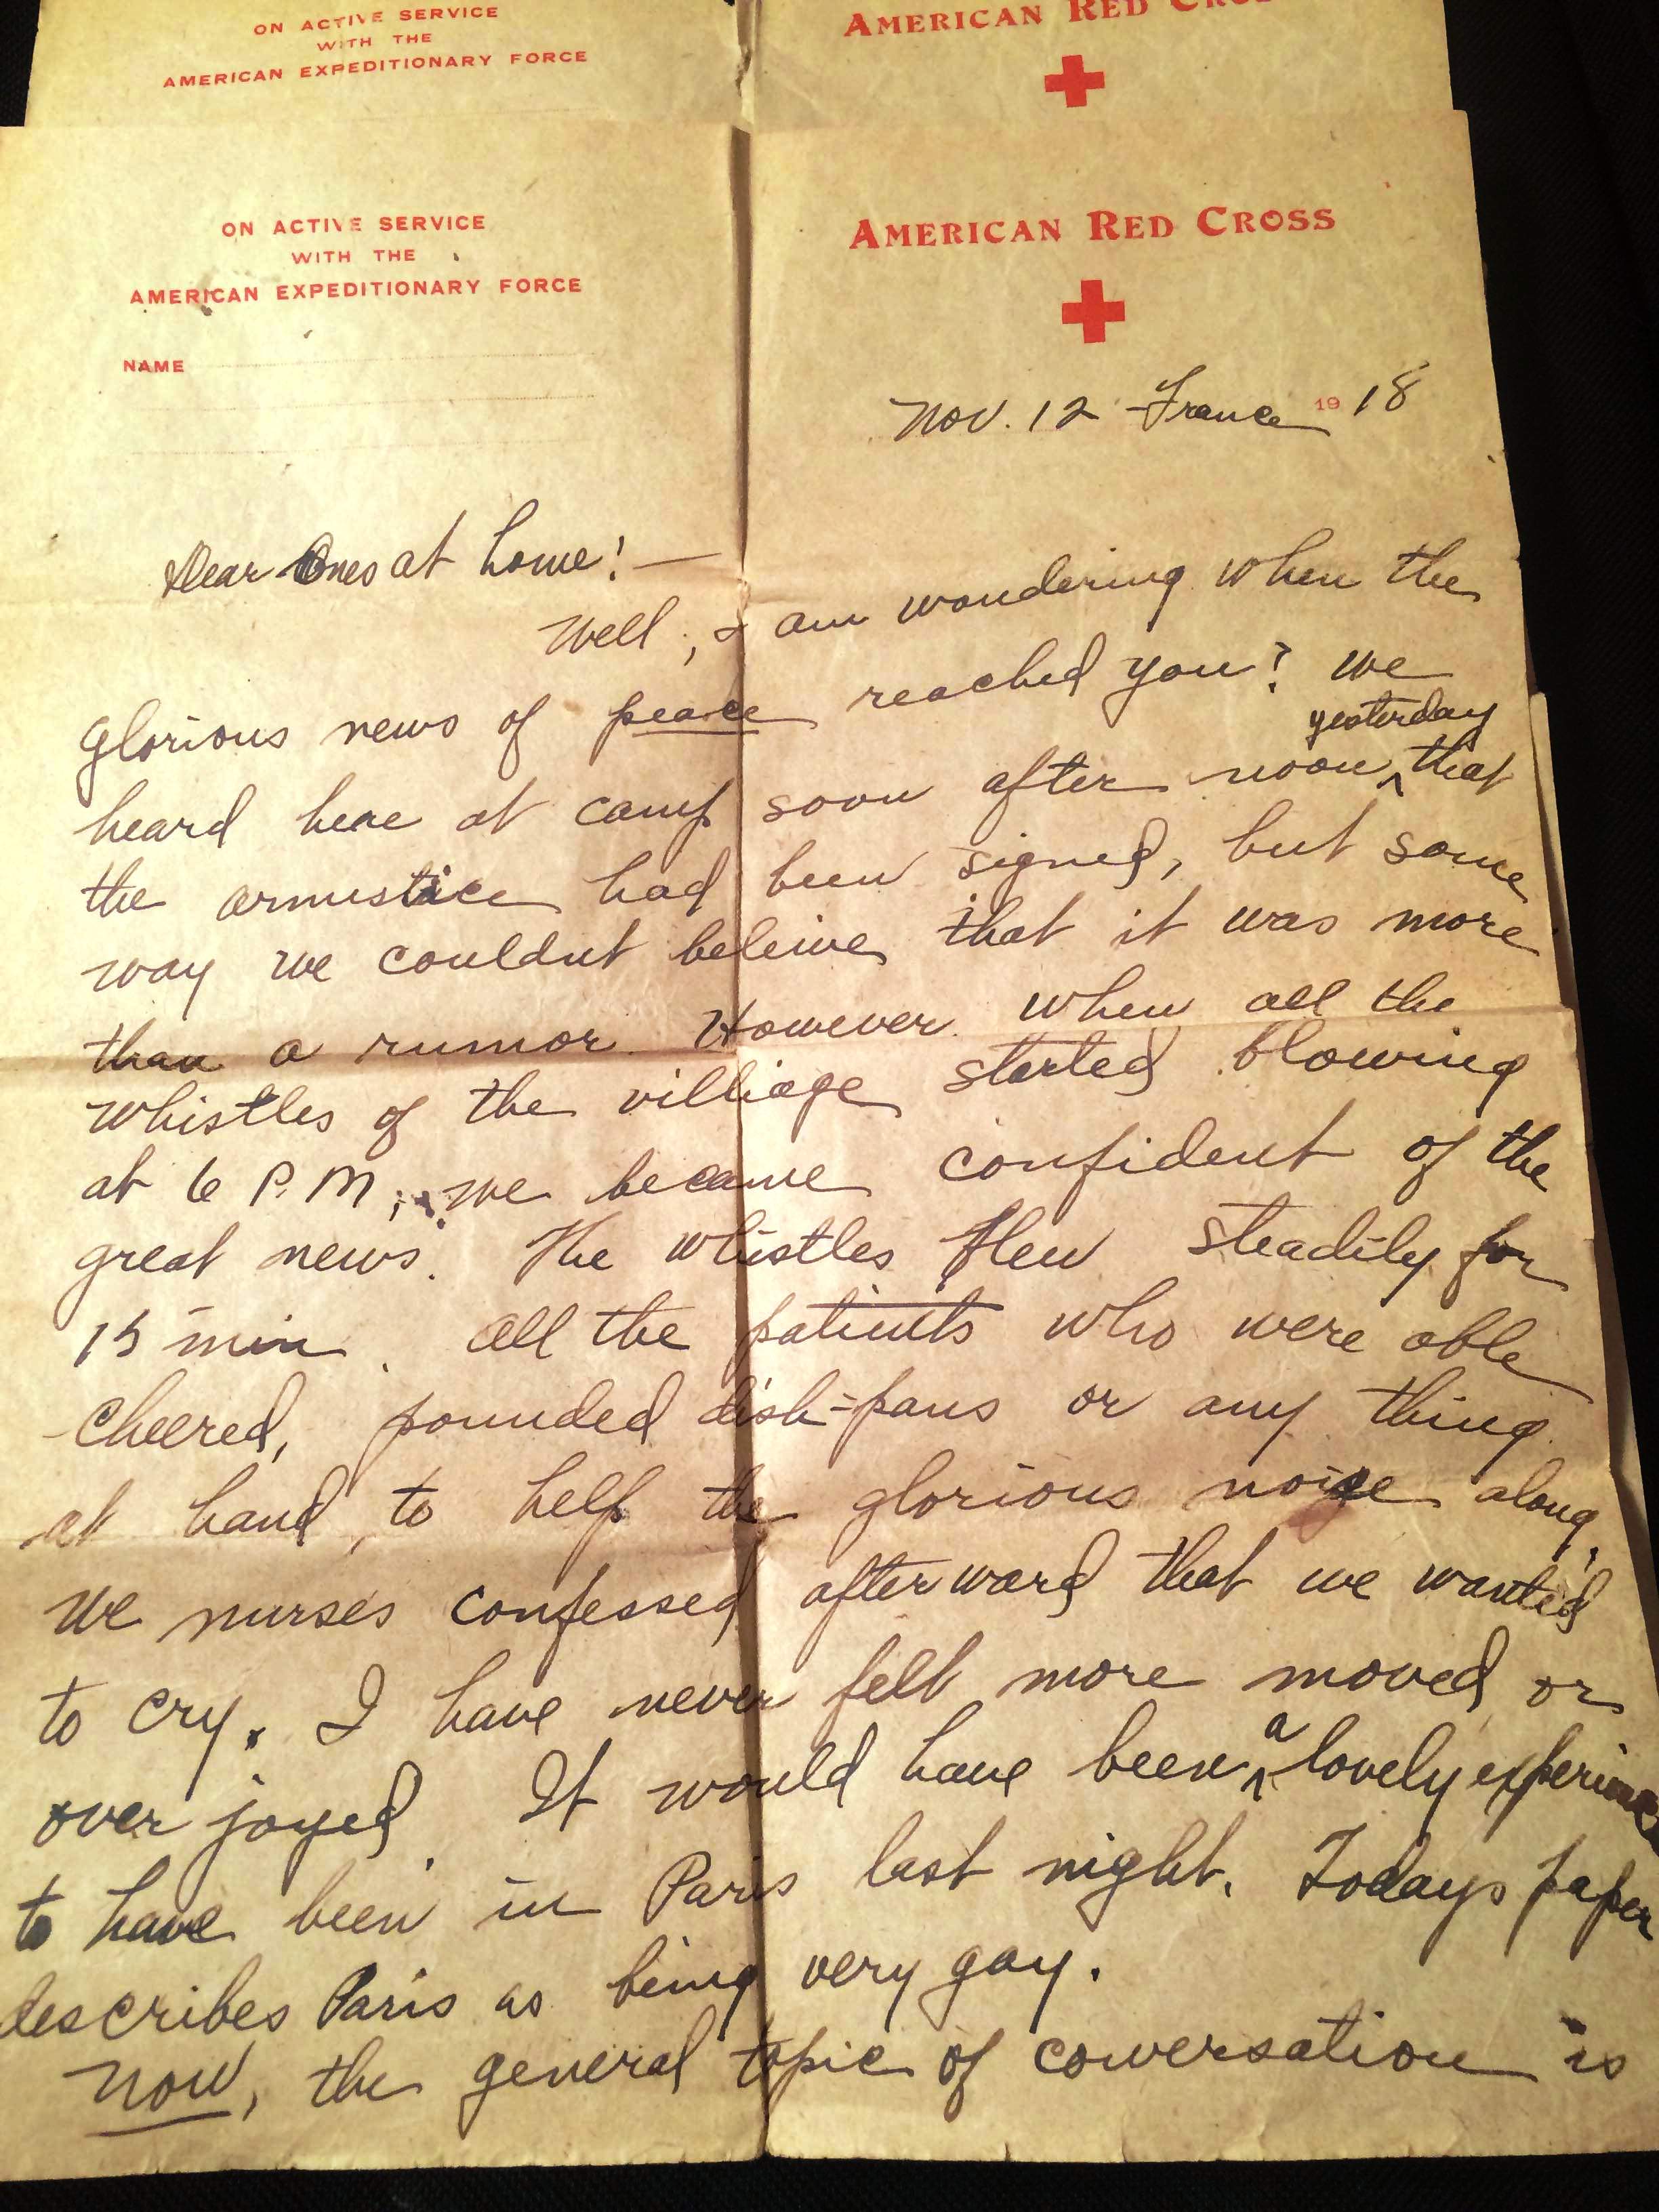 ON ACTIVE SERVICE
WITH THE
AMERICAN EXPEDITIONARY FORCE
AMERICAN RED CROS
ON ACTIVE SERVICE
WITH THE
AMERICAN EXPEDITIONARY FORCE
NAME
AMERICAN RED CROSS
Nov. 12 France 1918
Dear Ones at home! —
Well, I am wondering when the
glorious news of peace reached you? We
yesterday
heard here at camp soon after noon ^ that
the armistice had been signed, but some
way we couldnt beleive that it was more
than a rumor. However when all the
whistles of the villiage started blowing
at 6 P.M; we became confident of the
great news. The whistles blew steadily for
15 min. All the patients who were able
cheered, pounded dish-pans or any thing
at hand, to help the glorious noise along.
We nurses confessed afterward that we wanted
to cry. I have never felt more moved or
a
over joyed. It would have been ^ lovely experience
to have been in Paris last night. Todays paper
describes Paris as being very gay.
Now, the general topic of conversation is